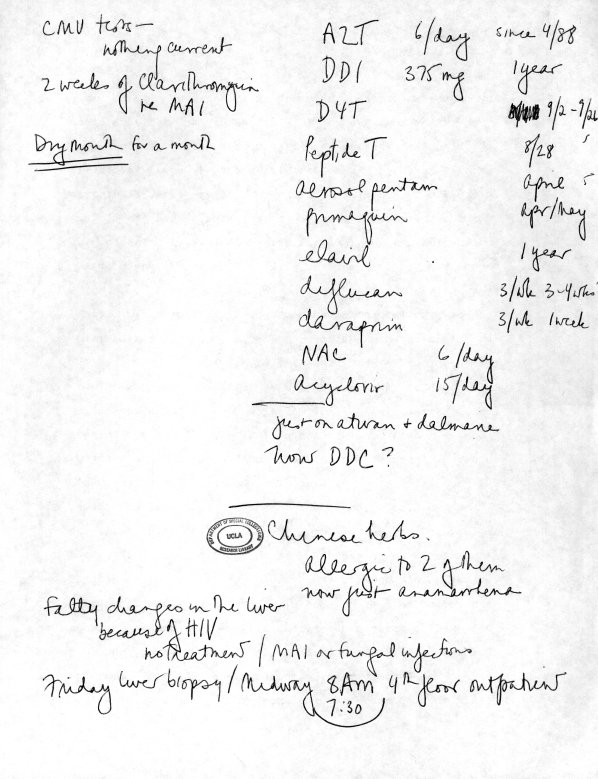 CMV tests—
nothing current
2 weeks of Clarithromycin
re MAI
Dry mouth for a month
AZT 6/day since 4/88
DDI 375 mg 1 year
D4T 9/2-9/26
Peptide T 8/28
aerosol pentam april
primaquin apr/May
elavil 1 year
diflucan 3/wk 3-4 wks
daraprim 3/wk 1 week
NAC 6/day
acyclovir 15/day
just on ativan + dalmane
now DDC?
DEPARTMENT OF SPECIAL COLLECTIONS
UCLA
RESEARCH LIBRARY
Chinese herbs.
allergic to 2 of them
now just anamarrhena
Fatty changes in the liver
because of HIV
no treatment / MAI or fungal infections
Friday liver biopsy / Midway 8AM 4th floor outpatient
7:30